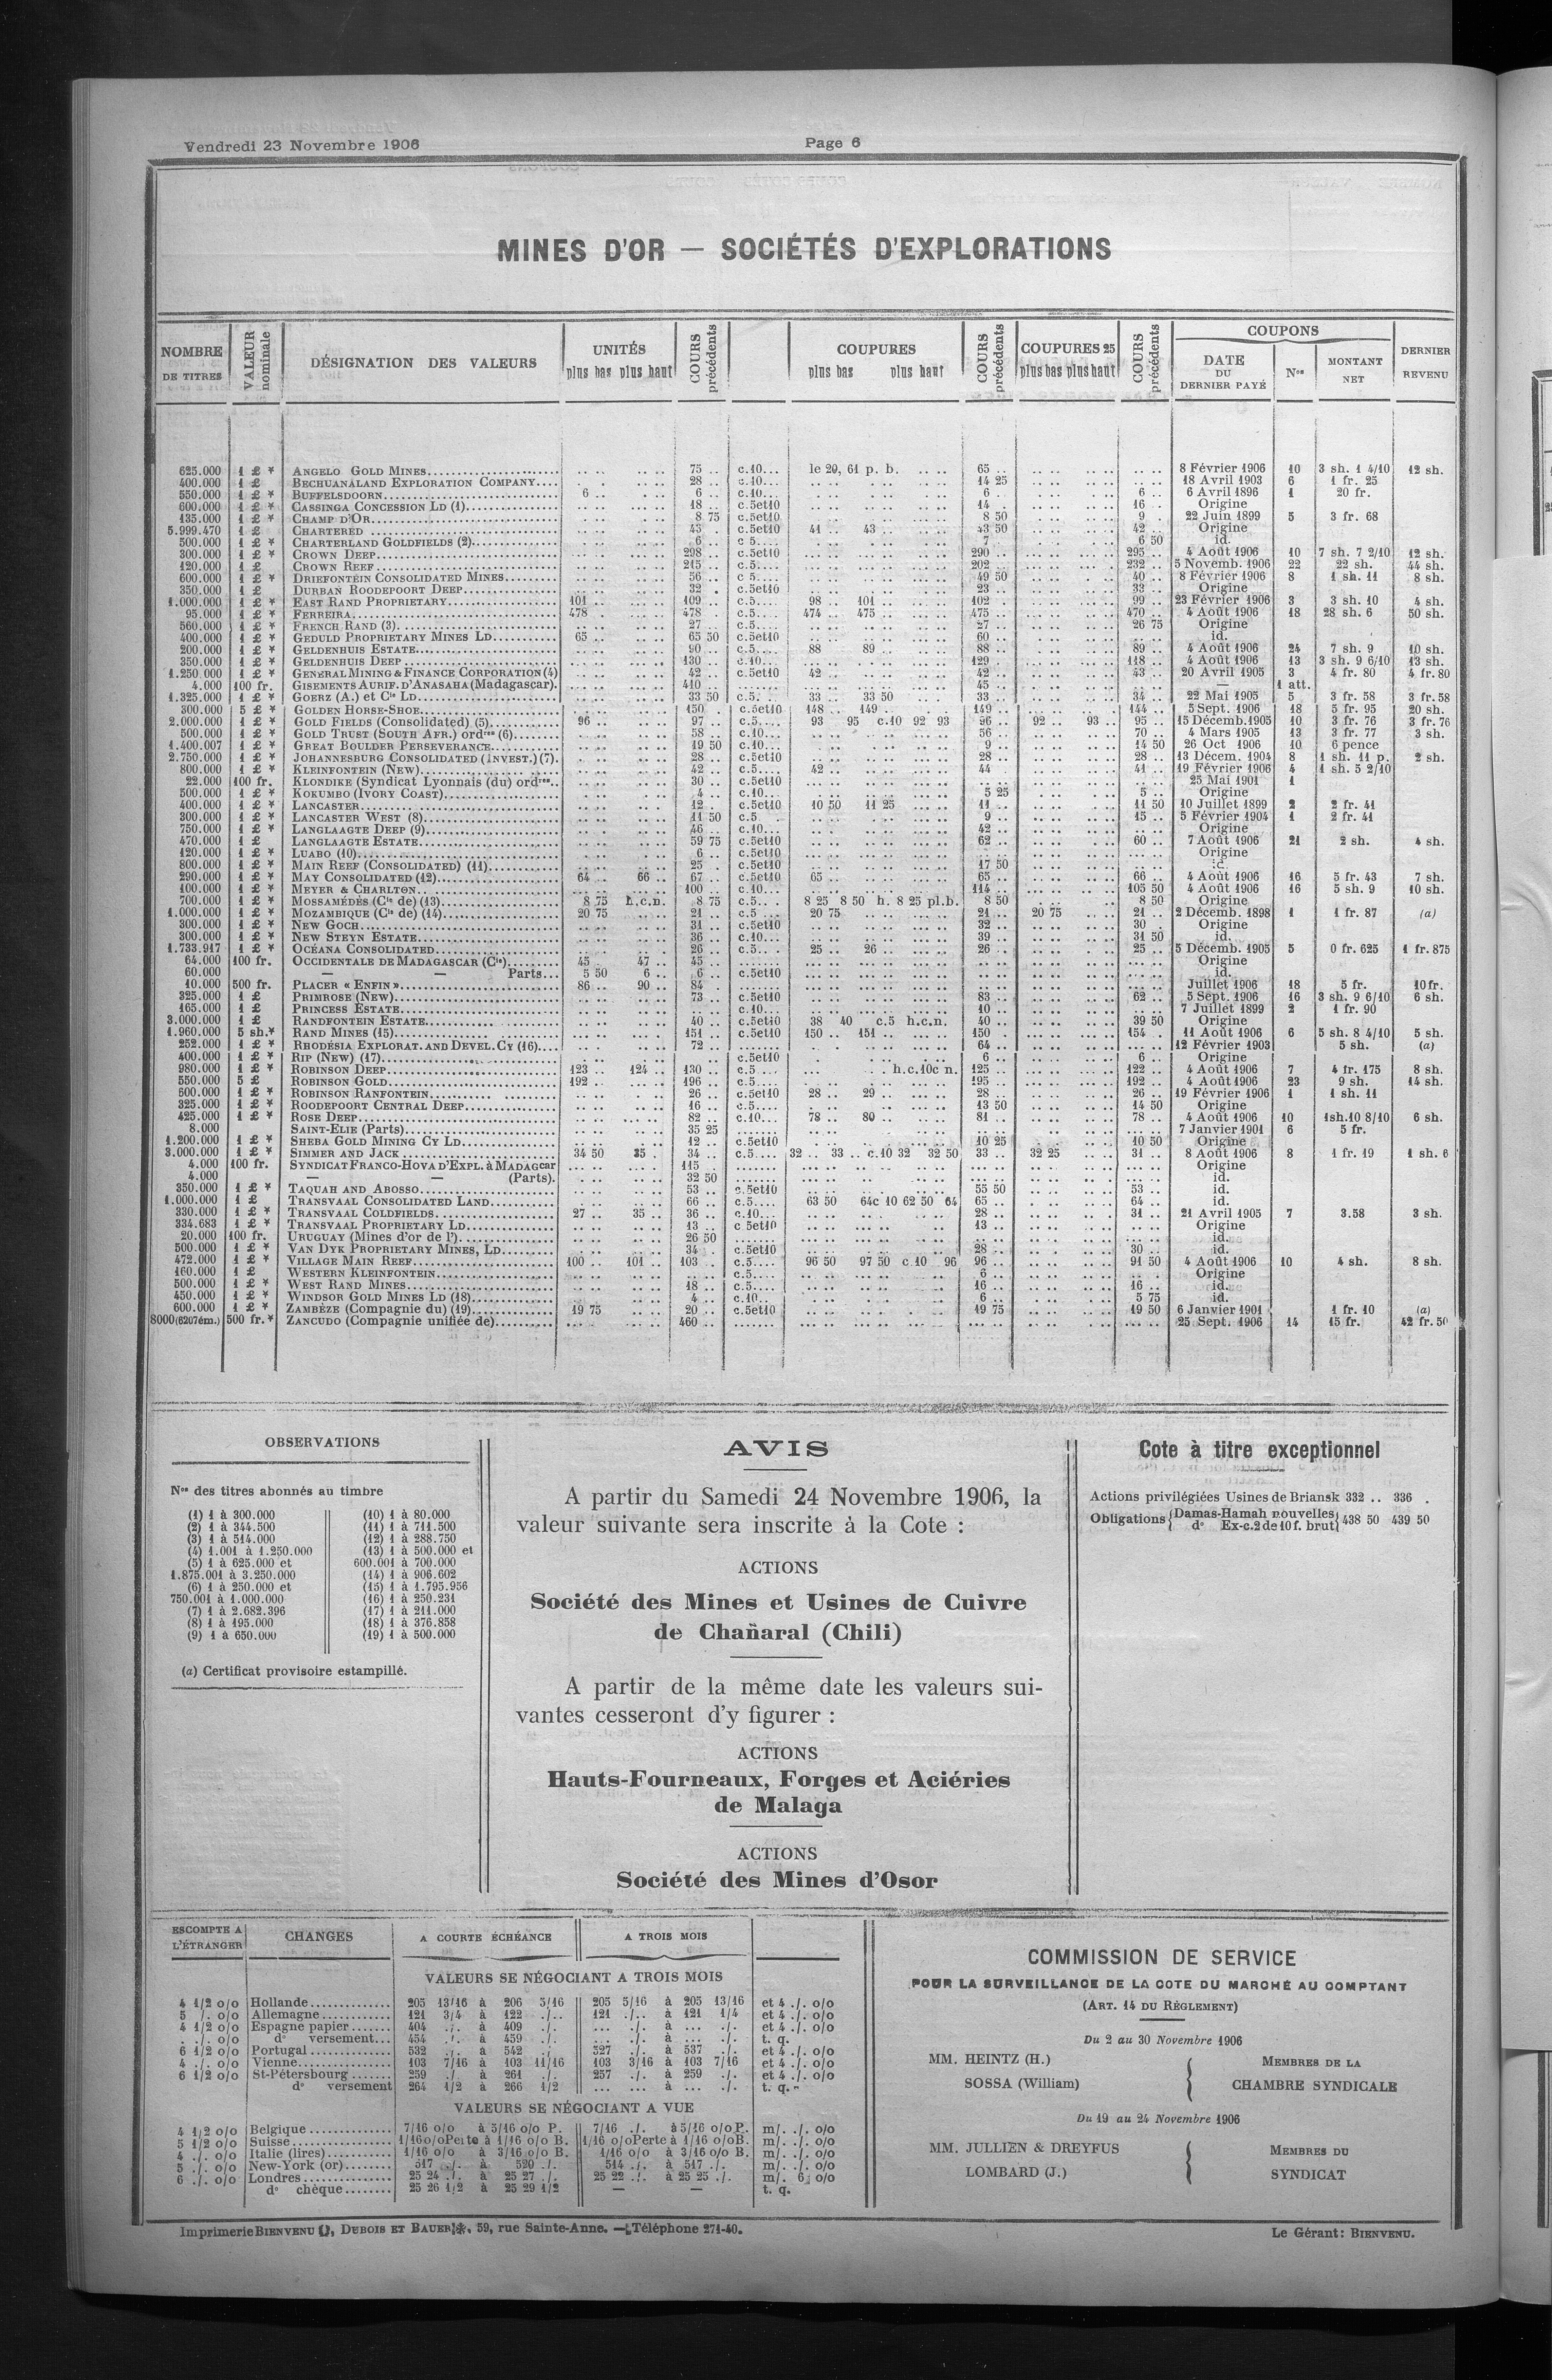 Vendredi 23 Novembre 1906
Page 6
MINES D'OR — SOCIÉTÉS D'EXPLORATIONS
NOMBRE DE TITRES | VALEUR nominale | DÉSIGNATION DES VALEURS | UNITÉS plus bas plus haut | COURS précédents | COUPURES plus bas plus haut | COURS précédents | COUPURES 25 plus bas plus haut | COURS précédents | COUPONS DATE DU DERNIER PAYÉ | Nos | MONTANT NET | DERNIER REVENU
625.000 1 £ * ANGELO GOLD MINES 75 .. c.10... le 20, 61 p. b. 65 .. 8 Février 1906 10 3 sh. 1 4/10 12 sh.
400.000 1 £ BECHUANALAND EXPLORATION COMPANY 28 .. c.10... 14 25 18 Avril 1903 6 1 fr. 25
550.000 1 £ * BUFFELSDOORN 6 .. 6 .. c.10... 6 . 6 .. 6 Avril 1896 1 20 fr.
600.000 1 £ * CASSINGA CONCESSION LD (1) 18 .. c.5et10 14 . 16 . Origine
135.000 1 £ * CHAMP D'OR 8 75 c.5et10 8 50 9 . 22 Juin 1899 5 3 fr. 68
5.999.470 1 £ CHARTERED 43 .. c.5et10 41 .. 43 .. 43 50 42 .. Origine
500.000 1 £ * CHARTERLAND GOLDFIELDS (2) 6 .. c 5.... 7 .. 6 50 id.
300.000 1 £ * CROWN DEEP 298 .. c.5et10 290 .. 295 .. 4 Août 1906 10 7 sh. 7 2/10 12 sh.
120.000 1 £ CROWN REEF 215 .. c.5.... 202 .. 232 .. 5 Novemb. 1906 22 22 sh. 44 sh.
600.000 1 £ * DRIEFONTEIN CONSOLIDATED MINES 56 .. c 5.... 49 50 40 .. 8 Février 1906 8 1 sh. 11 8 sh.
350.000 1 £ DURBAN ROODEPOORT DEEP 32 . c.5et10 23 .. 33 .. Origine
1.000.000 1 £ * EAST RAND PROPRIETARY 101 .. 109 .. c.5.... 98 .. 101 .. 102 .. 99 .. 23 Février 1906 3 3 sh. 10 4 sh.
95.000 1 £ * FERREIRA 478 .. 478 .. c.5.... 474 .. 475 .. 475 .. 470 .. 4 Août 1906 18 28 sh. 6 50 sh.
560.000 1 £ * FRENCH RAND (3) 27 .. c.5.... 27 .. 26 75 Origine
400.000 1 £ * GEDULD PROPRIETARY MINES LD 65 .. 65 50 c.5et10 60 .. id.
200.000 1 £ * GELDENHUIS ESTATE 90 .. c.5.... 88 89 .. 88 .. 89 .. 4 Août 1906 24 7 sh. 9 10 sh.
350.000 1 £ * GELDENHUIS DEEP 130 .. c.10... 129 .. 118 .. 4 Août 1906 13 3 sh. 9 6/10 13 sh.
1.250.000 1 £ * GENERAL MINING & FINANCE CORPORATION (4) 42 .. c.5et10 42 .. 42 .. 43 .. 20 Avril 1905 3 4 fr. 80 4 fr. 80
4.000 100 fr. GISEMENTS AURIF. D'ANASAHA (Madagascar). 410 .. 45 .. — 1 att.
1.325.000 1 £ * GOERZ (A.) et Cie LD 33 50 c.5. . 33 .. 33 50 34 .. 22 Mai 1905 5 3 fr. 58 3 fr. 58
300.000 5 £ * GOLDEN HORSE-SHOE 150 . c.5et10 148 .. 149 .. 149 .. 144 .. 5 Sept. 1906 18 5 fr. 95 20 sh.
2.000.000 1 £ * GOLD FIELDS (Consolidated) (5) 96 .. 97 .. c.5.... 93 95 c.10 92 93 96 .. 92 .. 93 .. 95 .. 15 Décemb. 1905 10 3 fr. 76 3 fr. 76
500.000 1 £ * GOLD TRUST (SOUTH AFR.) ordres (6) 58 .. c.10... 56 .. 70 .. 4 Mars 1905 13 3 fr. 77 3 sh.
1.400.007 1 £ * GREAT BOULDER PERSEVERANCE 19 50 c.10... 9 .. 14 50 26 Oct 1906 10 6 pence
2.750.000 1 £ * JOHANNESBURG CONSOLIDATED (INVEST.) (7). 28 .. c.5et10 28 .. 28 .. 13 Décem. 1904 8 1 sh. 11 p. 2 sh.
800.000 1 £ * KLEINFONTEIN (NEW) 42 .. c.5.... 42 .. 44 41 .. 19 Février 1906 4 1 sh. 5 2/10
22.000 100 fr. KLONDIKE (Syndicat Lyonnais (du) ordres.. 30 .. c.5et10 25 Mai 1901 1
500.000 1 £ * KOKUMBO (IVORY COAST) 4 .. c.10... 5 25 5 .. Origine
400.000 1 £ * LANCASTER 12 . c.5et10 10 50 11 25 11 .. 11 50 10 Juillet 1899 2 2 fr. 41
300.000 1 £ * LANCASTER WEST (8) 11 50 c.5 9 .. 15 .. 5 Février 1904 1 2 fr. 41
750.000 1 £ * LANGLAAGTE DEEP (9) 46 .. c.10... 42 .. Origine
470.000 1 £ LANGLAAGTE ESTATE 59 75 c.5et10 62 .. 60 .. 7 Août 1906 21 2 sh. 4 sh.
120.000 1 £ * LUABO (10) 6 .. c.5et10 Origine
800.000 1 £ * MAIN REEF (CONSOLIDATED) (11) 25 . c.5et10 17 50 id.
290.000 1 £ * MAY CONSOLIDATED (12) 64 .. 66 .. 67 .. c.5et10 65 .. 65 .. 66 .. 4 Août 1906 16 5 fr. 43 7 sh.
100.000 1 £ * MEYER & CHARLTON 100 .. c.10... 114 .. 105 50 4 Août 1906 16 5 sh. 9 10 sh.
700.000 1 £ * MOSSAMÉDÈS (Cie de) (13) 8 75 h.c.n. 8 75 c.5.. . 8 25 8 50 h. 8 25 pl.b. 8 50 8 50 Origine
1.000.000 1 £ * MOZAMBIQUE (Cie de) (14) 20 75 21 .. c.5 20 75 21 .. 20 75 21 .. 2 Décemb. 1898 1 1 fr. 87 (a)
300.000 1 £ * NEW GOCH 31 .. c.5et10 32 .. 30 . Origine
300.000 1 £ * NEW STEYN ESTATE 36 .. c.10... 39 .. 31 50 id.
1.733.917 1 £ * OCÉANA CONSOLIDATED 26 .. c.5.. . 25 .. 26 .. 26 .. 25 .. 5 Décemb. 1905 5 0 fr. 625 1 fr. 875
64.000 100 fr. OCCIDENTALE DE MADAGASCAR (Cie) 45 .. 47 .. 45 Origine
60.000 — — Parts... 5 50 6 .. 6 .. c.5et10 id.
10.000 500 fr. PLACER « ENFIN » 86 .. 90 .. 84 . Juillet 1906 18 5 fr. 10 fr.
325.000 1 £ PRIMROSE (NEW) 73 .. c.5et10 83 .. 62 .. 5 Sept. 1906 16 3 sh. 9 6/10 6 sh.
165.000 1 £ PRINCESS ESTATE c.10... 10 .. 7 Juillet 1899 2 1 fr. 90
3.000.000 1 £ RANDFONTEIN ESTATE 40 .. c.5et10 38 40 c.5 h.c.n. 40 .. 39 50 Origine
1.960.000 5 sh.* RAND MINES (15) 151 .. c.5et10 150 .. 151 .. 150 .. 154 . 11 Août 1906 6 5 sh. 8 4/10 5 sh.
252.000 1 £ * RHODÉSIA EXPLORAT. AND DEVEL. CY (16) 72 .. 64 .. 12 Février 1903 5 sh. (a)
400.000 1 £ * RIP (NEW) (17) c.5et10 6 .. 6 .. Origine
980.000 1 £ * ROBINSON DEEP 123 .. 124 .. 130 .. c.5 ... h.c.10c n. 125 .. 122 .. 4 Août 1906 7 4 fr. 175 8 sh.
550.000 5 £ ROBINSON GOLD 192 .. 196 .. c.5.... 195 .. 192 .. 4 Août 1906 23 9 sh. 14 sh.
600.000 1 £ * ROBINSON RANFONTEIN 26 .. c.5et10 28 .. 29 .. 28 .. 26 .. 19 Février 1906 1 1 sh. 11
325.000 1 £ * ROODEPOORT CENTRAL DEEP 16 .. c.5.... 13 50 14 50 Origine
425.000 1 £ * ROSE DEEP 82 .. c.10... 78 .. 80 .. 81 .. 78 .. 4 Août 1906 10 1sh.10 8/10 6 sh.
8.000 SAINT-ELIE (Parts) 35 25 7 Janvier 1901 6 5 fr.
1.200.000 1 £ * SHEBA GOLD MINING CY LD 12 .. c.5et10 10 25 10 50 Origine
3.000.000 1 £ * SIMMER AND JACK 34 50 35 . 34 .. c.5.... 32 .. 33 .. c.10 32 32 50 33 .. 32 25 31 .. 8 Août 1906 8 1 fr. 19 1 sh. 6
4.000 100 fr. SYNDICAT FRANCO-HOVA D'EXPL. à MADAGcar 115 . Origine
4.000 — — (Parts). 32 50 id.
350.000 1 £ * TAQUAH AND ABOSSO 53 .. c.5et10 55 50 53 .. id.
1.000.000 1 £ TRANSVAAL CONSOLIDATED LAND 66 .. c.5.... 63 50 64c 10 62 50 64 65 .. 64 .. id.
330.000 1 £ * TRANSVAAL COLDFIELDS 27 35 .. 36 .. c.10... 28 .. 31 .. 21 Avril 1905 7 3.58 3 sh.
334.683 1 £ * TRANSVAAL PROPRIETARY LD 13 .. c 5et10 13 .. Origine
20.000 100 fr. URUGUAY (Mines d'or de l') 26 50 id.
500.000 1 £ * VAN DYK PROPRIETARY MINES, LD 34 . c.5et10 28 .. 30 .. id.
472.000 1 £ * VILLAGE MAIN REEF 100 .. 101 .. 103 . c.5.... 96 50 97 50 c 10 96 96 .. 91 50 4 Août 1906 10 4 sh. 8 sh.
160.000 1 £ WESTERN KLEINFONTEIN c.5.... 6 .. Origine
500.000 1 £ * WEST RAND MINES 18 .. c.5.... 16 .. 16 .. id.
450.000 1 £ * WINDSOR GOLD MINES LD (18) 4 .. c.10.. 6 .. 5 75 id.
600.000 1 £ * ZAMBÈZE (Compagnie du) (19) 19 75 20 .. c.5et10 19 75 19 50 6 Janvier 1901 1 fr. 10 (a)
8000(6207ém.) 500 fr.* ZANCUDO (Compagnie unifiée de) 460 .. 25 Sept. 1906 14 15 fr. 42 fr. 50
OBSERVATIONS
Nos des titres abonnés au timbre
(1) 1 à 300.000
(2) 1 à 344.500
(3) 1 à 514.000
(4) 1.001 à 1.250.000
(5) 1 à 625.000 et
1.875.001 à 3.250.000
(6) 1 à 250.000 et
750.001 à 1.000.000
(7) 1 à 2.682.396
(8) 1 à 195.000
(9) 1 à 650.000
(10) 1 à 80.000
(11) 1 à 711.500
(12) 1 à 288.750
(13) 1 à 500.000 et
600.001 à 700.000
(14) 1 à 906.602
(15) 1 à 1.795.956
(16) 1 à 250.231
(17) 1 à 211.000
(18) 1 à 376.858
(19) 1 à 500.000
(a) Certificat provisoire estampillé.
AVIS
A partir du Samedi 24 Novembre 1906, la
valeur suivante sera inscrite à la Cote :
ACTIONS
Société des Mines et Usines de Cuivre
de Chañaral (Chili)
A partir de la même date les valeurs sui-
vantes cesseront d'y figurer :
ACTIONS
Hauts-Fourneaux, Forges et Aciéries
de Malaga
ACTIONS
Société des Mines d'Osor
Cote à titre exceptionnel
Actions privilégiées Usines de Briansk 332 .. 336 .
Obligations { Damas-Hamah nouvelles
do Ex-c.2 de 10 f. brut } 438 50 439 50
ESCOMPTE A L'ÉTRANGER | CHANGES | A COURTE ÉCHÉANCE | A TROIS MOIS
VALEURS SE NÉGOCIANT A TROIS MOIS
4 1/2 o/o Hollande 205 13/16 à 206 5/16 205 5/16 à 205 13/16 et 4 ./. o/o
5 ./. o/o Allemagne 121 3/4 à 122 ./.. 121 ./.. à 121 1/4 et 4 ./. o/o
4 1/2 o/o Espagne papier 404 ./. à 409 ./. ... ./. à ... ./. et 4 ./. o/o
. ./. o/o do versement... 454 ./. à 459 ./. ... ./. à ... ./. t. q.
6 1/2 o/o Portugal 532 ./. à 542 ./ 527 ./. à 537 ./. et 4 ./. o/o
4 ./. o/o Vienne 103 7/16 à 103 11/16 103 3/16 à 103 7/16 et 4 ./. o/o
6 1/2 o/o St-Pétersbourg 259 ./. à 261 ./. 257 ./. à 259 ./. et 4 ./. o/o
do versement 264 1/2 à 266 1/2 ... ... à ... ./. t. q.
VALEURS SE NÉGOCIANT A VUE
4 1/2 o/o Belgique 7/16 o/o à 5/16 o/o P. 7/16 ./. à 5/16 o/o P. m/. ./. o/o
5 1/2 o/o Suisse 1/16 o/o Perte à 1/16 o/o B. 1/16 o/o Perte à 1/16 o/o B. m/. ./. o/o
4 ./. o/o Italie (lires) 1/16 o/o à 3/16 o/o B. 1/16 o/o à 3/16 o/o B. m/. ./. o/o
5 ./. o/o New-York (or) 517 ./. à 520 ./. 514 ./. à 517 ./. m/. ./. o/o
6 ./. o/o Londres 25 24 ./. à 25 27 ./. 25 22 ./. à 25 25 ./. m/. 6 o/o
do chèque 25 26 1/2 à 25 29 1/2 — — t. q.
COMMISSION DE SERVICE
POUR LA SURVEILLANCE DE LA COTE DU MARCHÉ AU COMPTANT
(ART. 14 DU RÈGLEMENT)
Du 2 au 30 Novembre 1906
MM. HEINTZ (H.)
SOSSA (William)
MEMBRES DE LA
CHAMBRE SYNDICALE
Du 19 au 24 Novembre 1906
MM. JULLIEN & DREYFUS
LOMBARD (J.)
MEMBRES DU
SYNDICAT
Imprimerie BIENVENU, DUBOIS ET BAUER, 59, rue Sainte-Anne. — Téléphone 271-40.
Le Gérant: BIENVENU.